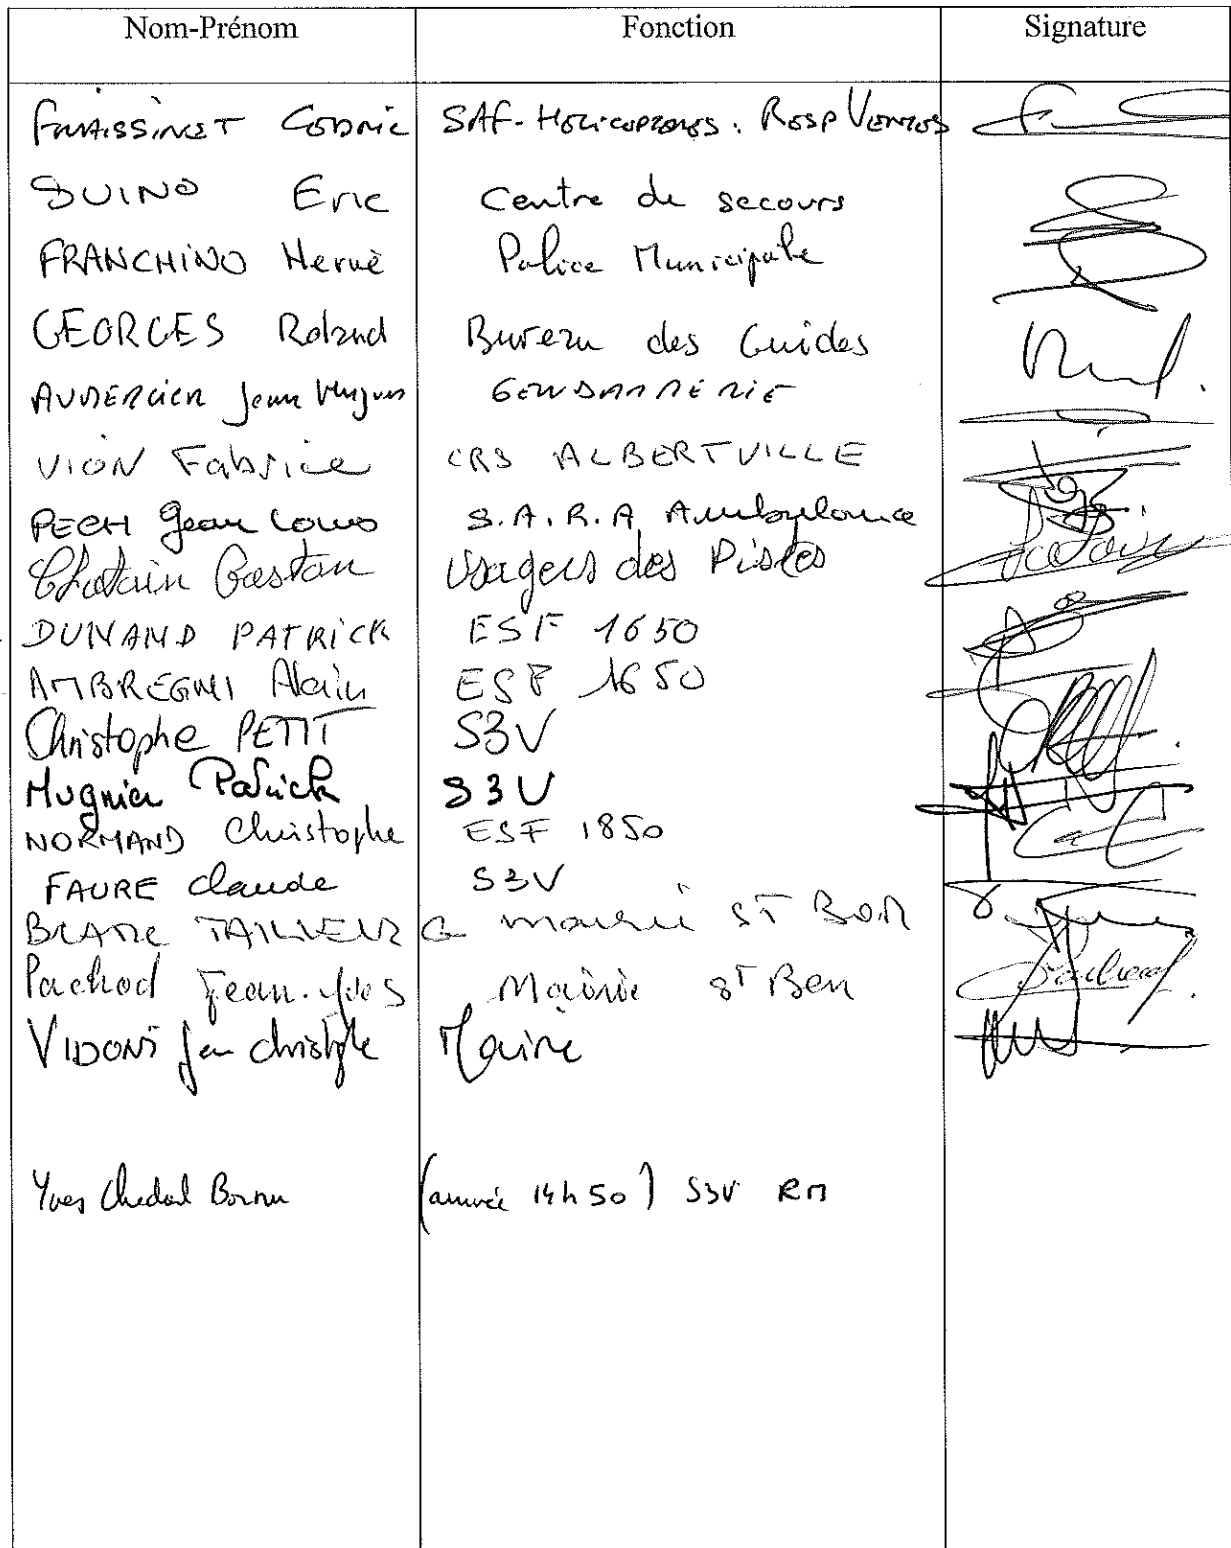 Nom-Prénom Fonction Signature
FRAISSINET Cédric SAF-Hélicoptères. Resp Ventes
SUINO Eric Centre de secours
FRANCHINO Hervé Police Municipale
GEORGES Roland Bureau des Guides
Jean Hugues GENDARMERIE
VION Fabrice CRS ALBERTVILLE
PECH Jean Louis S.A.R.A Ambulance
Chatain Gaston Usagers des Pistes
DUNAND PATRICK ESF 1650
Alain ESF 1650
Christophe PETIT S3V
Mugnier Patrick S3V
NORMAND Christophe ESF 1850
FAURE Claude S3V
BLANC TAILLEUR G mairie ST BON
Pachod Jean-Yves Mairie St Bon
VIDONI Jean Christophe Mairie
Yves Chedal Bornu (arrivée 14h50) S3V RM